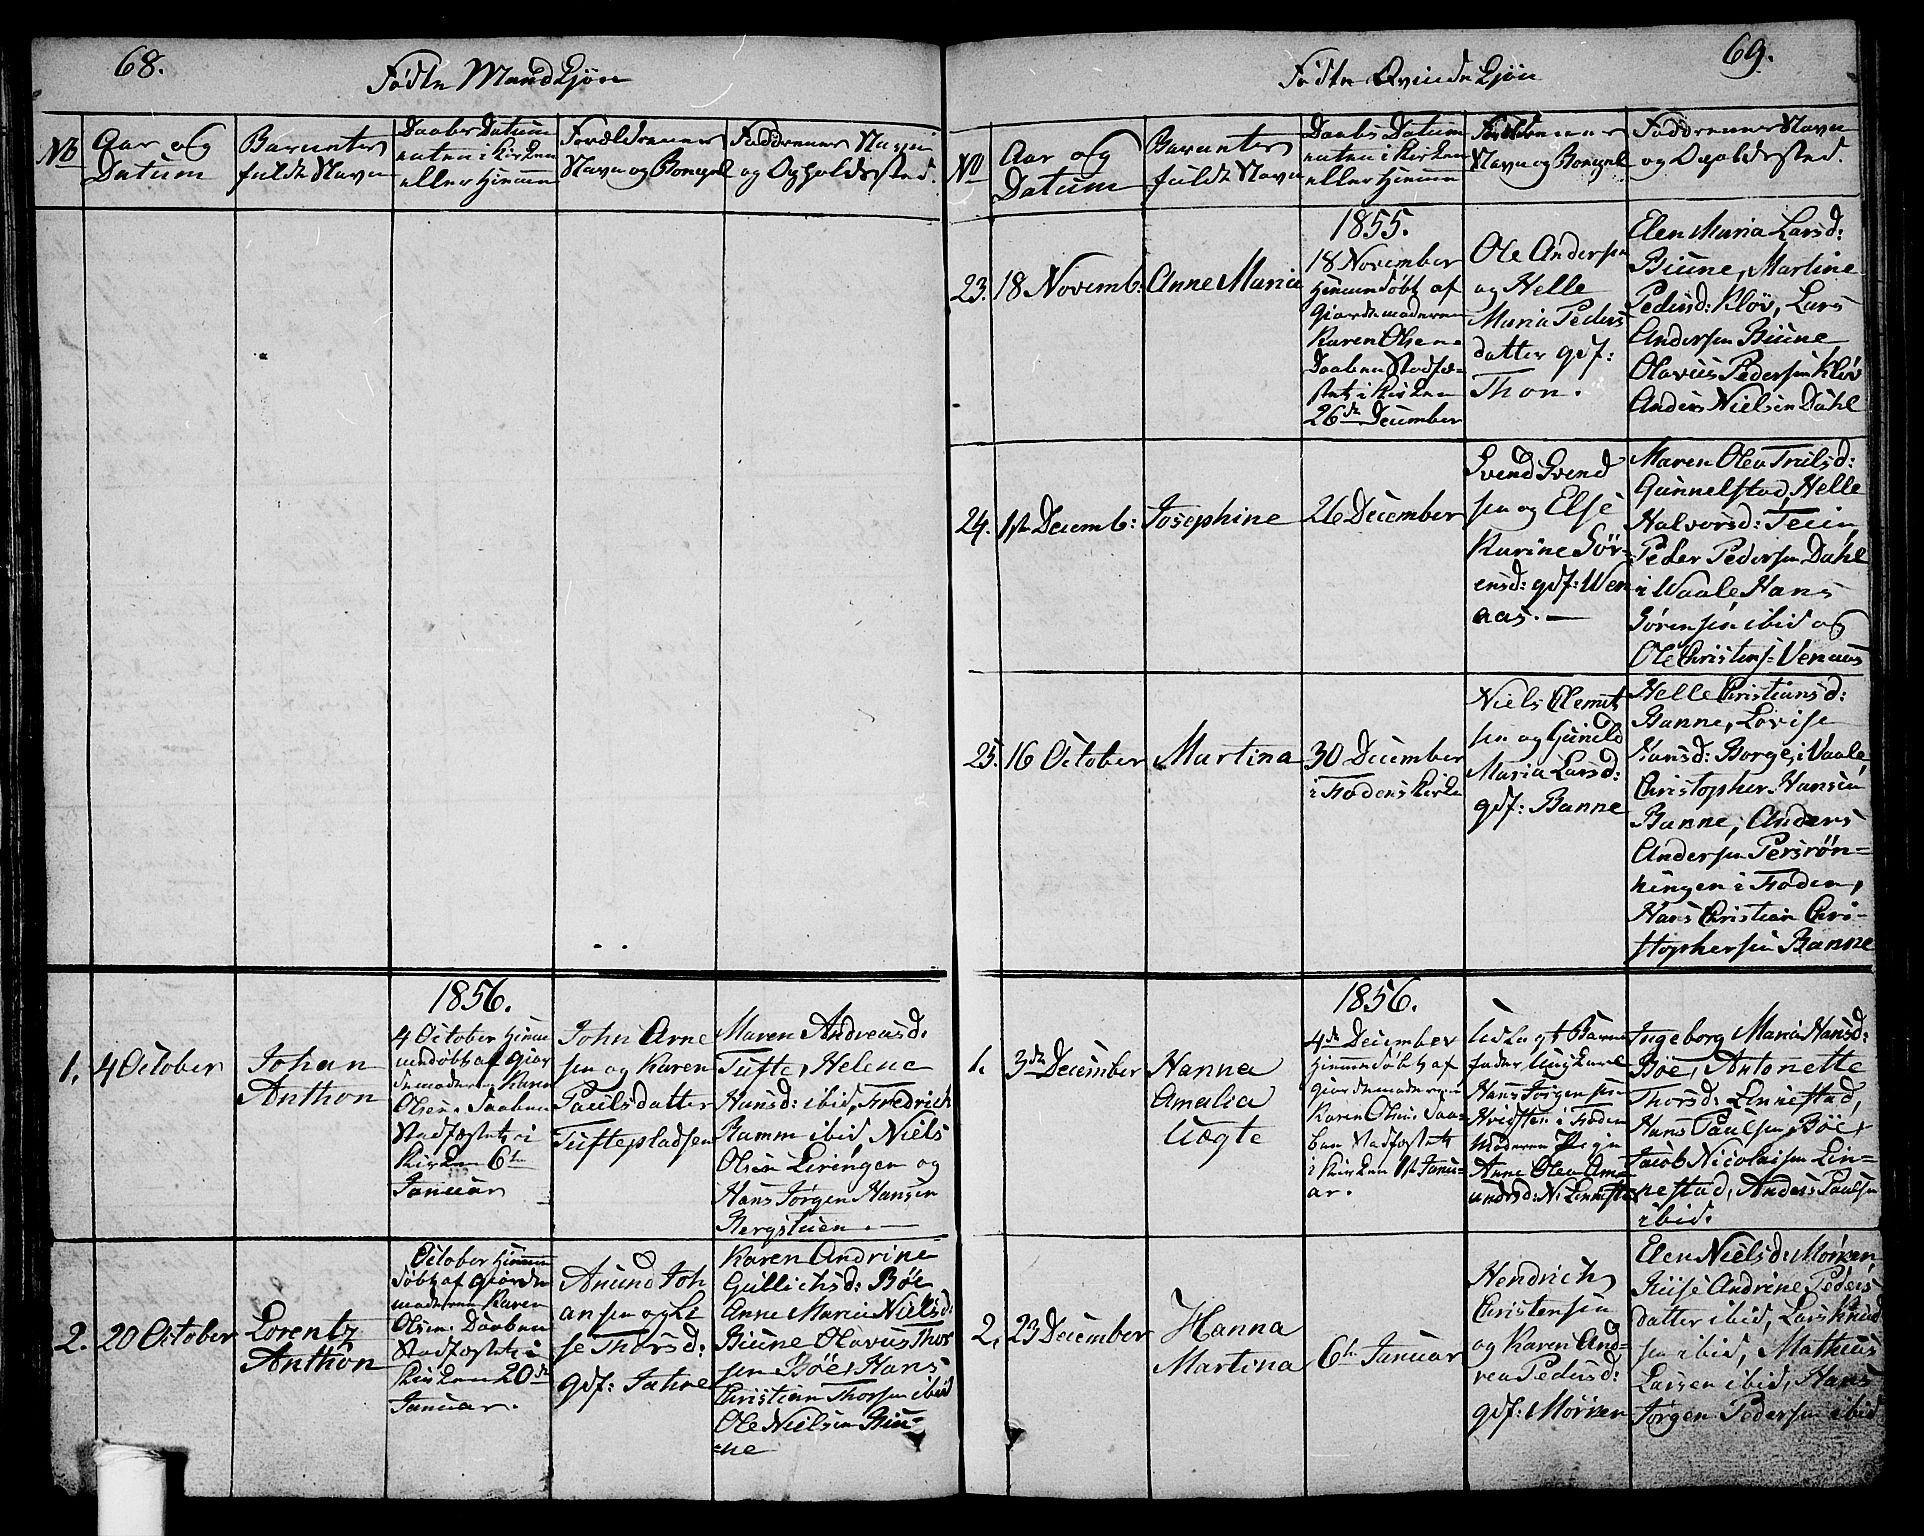 68.
Fødte Mandkjøn
No
Aar og
Datum
Barnets
fulde Navn
Daabs Datum
enten i Kirken
eller Hjemme
Forældrenes
Navn og Bopæl
Faddernes Navn
og Opholdssted.
1856.
1.
4 October
Johan
Anthon
4 October Hjem
medøbt af Gjor
demoderen Karen
Olsen. Daaben
Stadfæstet i
Kirken 6te
Januar
John Arne
sen og Karen
Paulsdatter
Tuftepladsen
Maren Andreasd:
Tufte, Helene
Hansd: ibid, Fredrich
Ramm ibid, Niels
Olsen Lerengen og
Hans Jørgen Hansen
Bergstuen. —
2.
20 October
Lorentz
Anthon
October Hjemme
døbt af Gjorde
moderen Karen
Olsen. Daaben
Stadfæstet i
Kirken 20de
Januar.
Amund Joh
ansen og Li
se Thorsd:
gdf: Jahre
Karen Andrine
Gullichsd: Bøe
Anne Maria Nielsd:
Biune Olavus Thor
sen Bøe, Hans
Christian Thorsen ibid
Ole Nielsen Biu-
ne
69.
Fødte Qvindekjøn
No
Aar og
Datum
Barnets
fulde Navn
Daabs Datum
enten i Kirken
eller Hjemme
Forældrenes
Navn og Bopæl
Faddernes Navn
og Opholdssted.
1855.
23.
18 Novemb:
Anne Maria
18 November
Hjemmedøbt af
Gjordemoderen
Karen Olsen.
Daaben Stadfæ-
stet i Kirken
26de December
Ole Andersen
og Helle
Maria Peders
datter gdf:
Thon.
Elen Maria Larsd:
Biune, Martine
Pedersd: Kløv, Lars
Andersen Biune
Olavus Pedersen Kløv
Anders Nielsen Dahl
24.
1ste Decemb:
Josephine
26 December
Svend Svend
sen og Else
Karine Sør-
ensd: gdf: Wen
aas. —
Maren Olea Trulsd:
Gunnelstad, Helle
Halvorsd: Teien
Peder Pedersen Dahl
i Waale Hans
Sørensen ibid og
Ole Christens: Venaas
25.
16 October
Martina
30 December
i Fodens Kirke
Niels Clemet
sen og Gunild
Maria Larsd:
gdf: Banne
Helle Christiansd:
Banne, Lovise
Hansd: Borge i Vaale,
Christopher Hansen
Banne, Anders
Andersen Persrøn-
ningen i Foden,
Hans Christian Chri-
stophersen Banne
1856.
1.
3de December
Hanna
Amalia
Uægte
4de December
Hjemmedøbt af
Gjordemoderen
Karen Olsen. Daa-
ben Stadfæstet
i Kirken 1ste Janu-
ar.
Udlagt Barne
fader Ungkarl
Hans Jørgensen
i Foden
Moderen Pige
Anne Olea Am-
undsd: N. Linnestad
Ingeborg Maria Hansd:
Bøe, Antonette
Thorsd: Linnestad,
Hans Paulsen Bøe,
Jacob Nicolaisen Lin-
nestad, Anders Paulsen
ibid.
2.
23 December
Hanna
Martina
6te Januar
Hendrich
Christensen
og Karen And-
rea Pedersd:
gdf: Mørken
Elen Nielsd: Mørken,
Andrine Peders
datter ibid, Lars Knud
sen ibid, Mathias
Larsen ibid, Hans
Jørgen Pedersen ibid